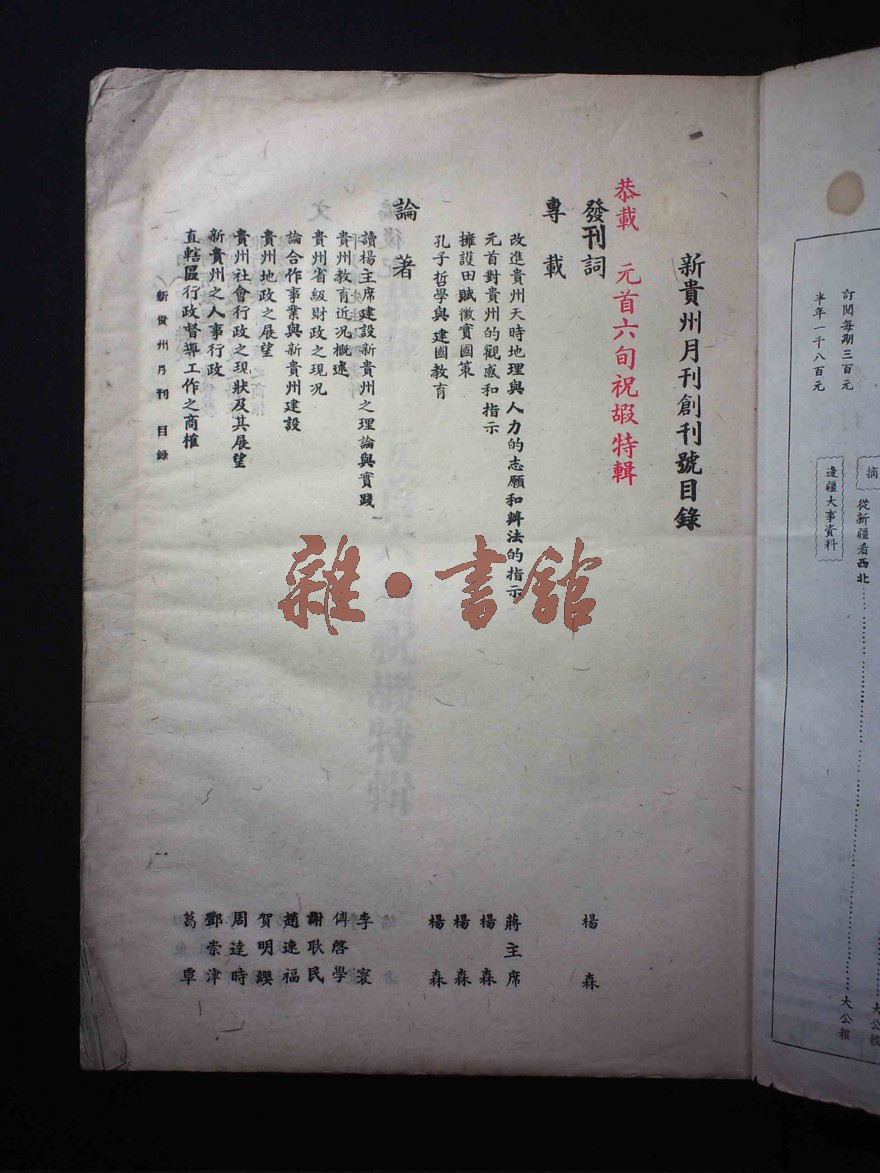 新貴州月刊創刊號目錄
恭載 元首六旬祝嘏特輯
發刊詞 楊森
專載
改進貴州天時地理與人力的志願和辦法的指示 蔣主席
元首對貴州的觀感和指示 楊森
擁護田賦徵實國策 楊森
孔子哲學與建國教育 楊森
論著
讀楊主席建設新貴州之理論與實踐 李寰
貴州教育近況概述 傅啓學
貴州省級財政之現況 謝耿民
論合作事業與新貴州建設 趙連福
貴州地政之展望 賀明纓
貴州社會行政之現狀及其展望 周達時
新貴州之人事行政 鄧崇津
直轄區行政督導工作之商榷 葛覃
新貴州月刊 目錄
一
雜·書館
摘
從新疆看西北 大公報
邊疆大事資料 大公報
訂閱每期三百元
半年一千八百元